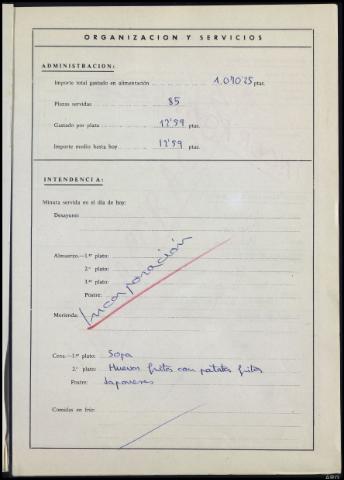 ORGANIZACION Y SERVICIOS
ADMINISTRACION:
Importe total gastado en alimentación 1.070'25 ptas.
Plazas servidas 85
Gastado por plaza 12'59 ptas.
Importe medio hasta hoy 12'59 ptas.
INTENDENCIA:
Minuta servida en el día de hoy:
Desayuno:
Almuerzo.—1.er plato:
2.º plato:
3.er plato:
Postre:
Incorporación
Merienda:
Cena.—1.er plato: Sopa
2.º plato: Huevos fritos con patatas fritas
Postre: Japoneses
Comidas en frío: